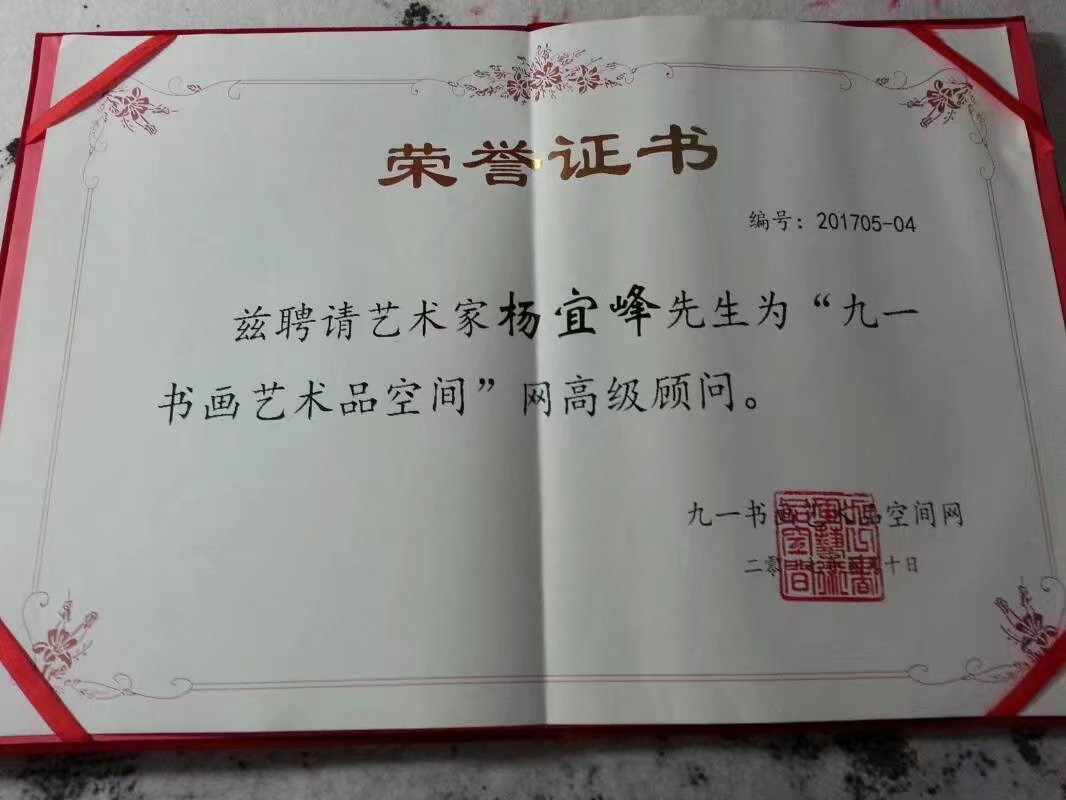 荣誉证书
编号：201705-04
兹聘请艺术家杨宜峰先生为“九一
书画艺术品空间”网高级顾问。
九一书画艺术品空间网
二零 十日